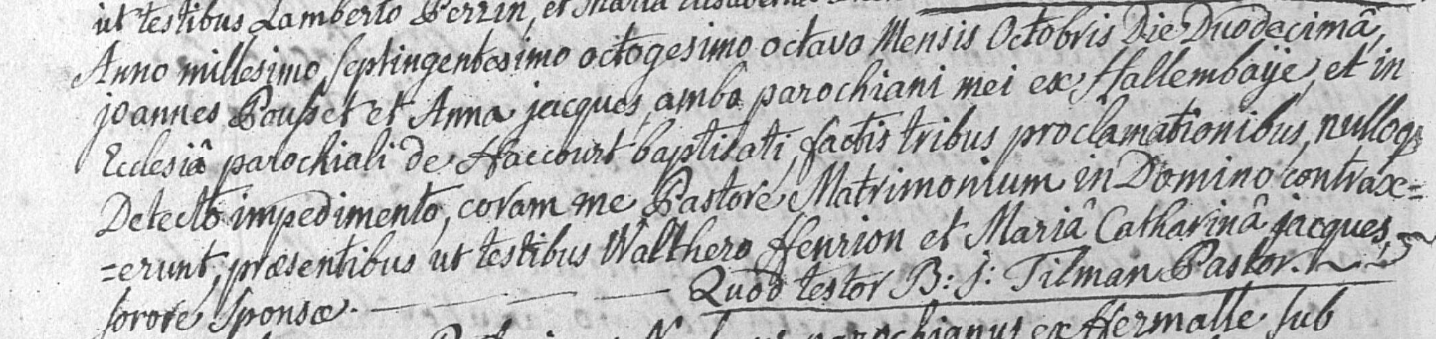 ut testibus Lamberto Perrin, et Maria
Anno millesimo septingentesimo octogesimo octavo Mensis Octobris Die Duodecimâ,
joannes Pousset et Anna jacques, ambo parochiani mei ex Hallembaije, et in
Ecclesiâ parochiali de Haccourt baptisati, factis tribus proclamationibus, nulloq
Detecto impedimento, coram me Pastore Matrimonium in Domino contrax=
=erunt, præsentibus ut testibus Walthero Henrion et Mariâ Catharinâ jacques,
sorore sponsæ.
Quod testor B: J: Tilman Pastor.
parochianus ex Hermalle sub